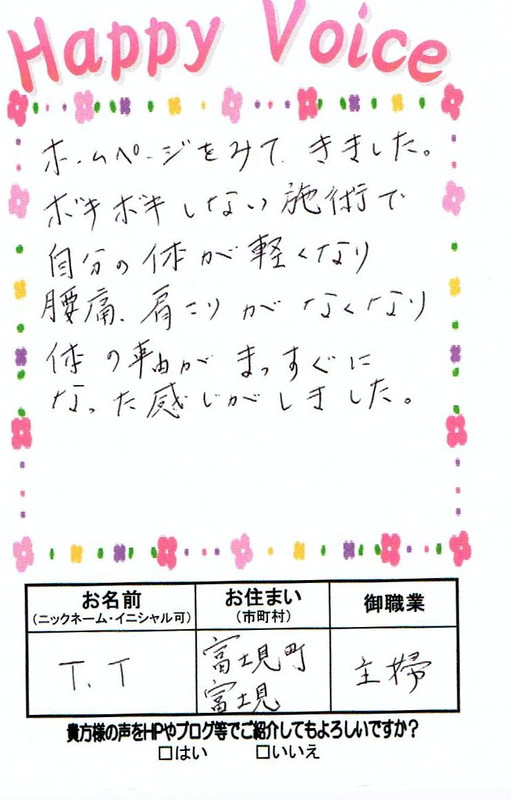 Happy Voice
ホームページをみて、きました。
ボキボキしない施術で
自分の体が軽くなり
腰痛、肩こりがなくなり
体の軸がまっすぐに
なった感じがしました。
お名前 お住まい 御職業
(ニックネーム・イニシャル可) (市町村)
T.T 富士見町 主婦
富士見
貴方様の声をHPやブログ等でご紹介してもよろしいですか?
□はい □いいえ